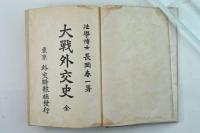 法學博士 長岡春一著
大戰外交史 全
東京 外交時報社發行